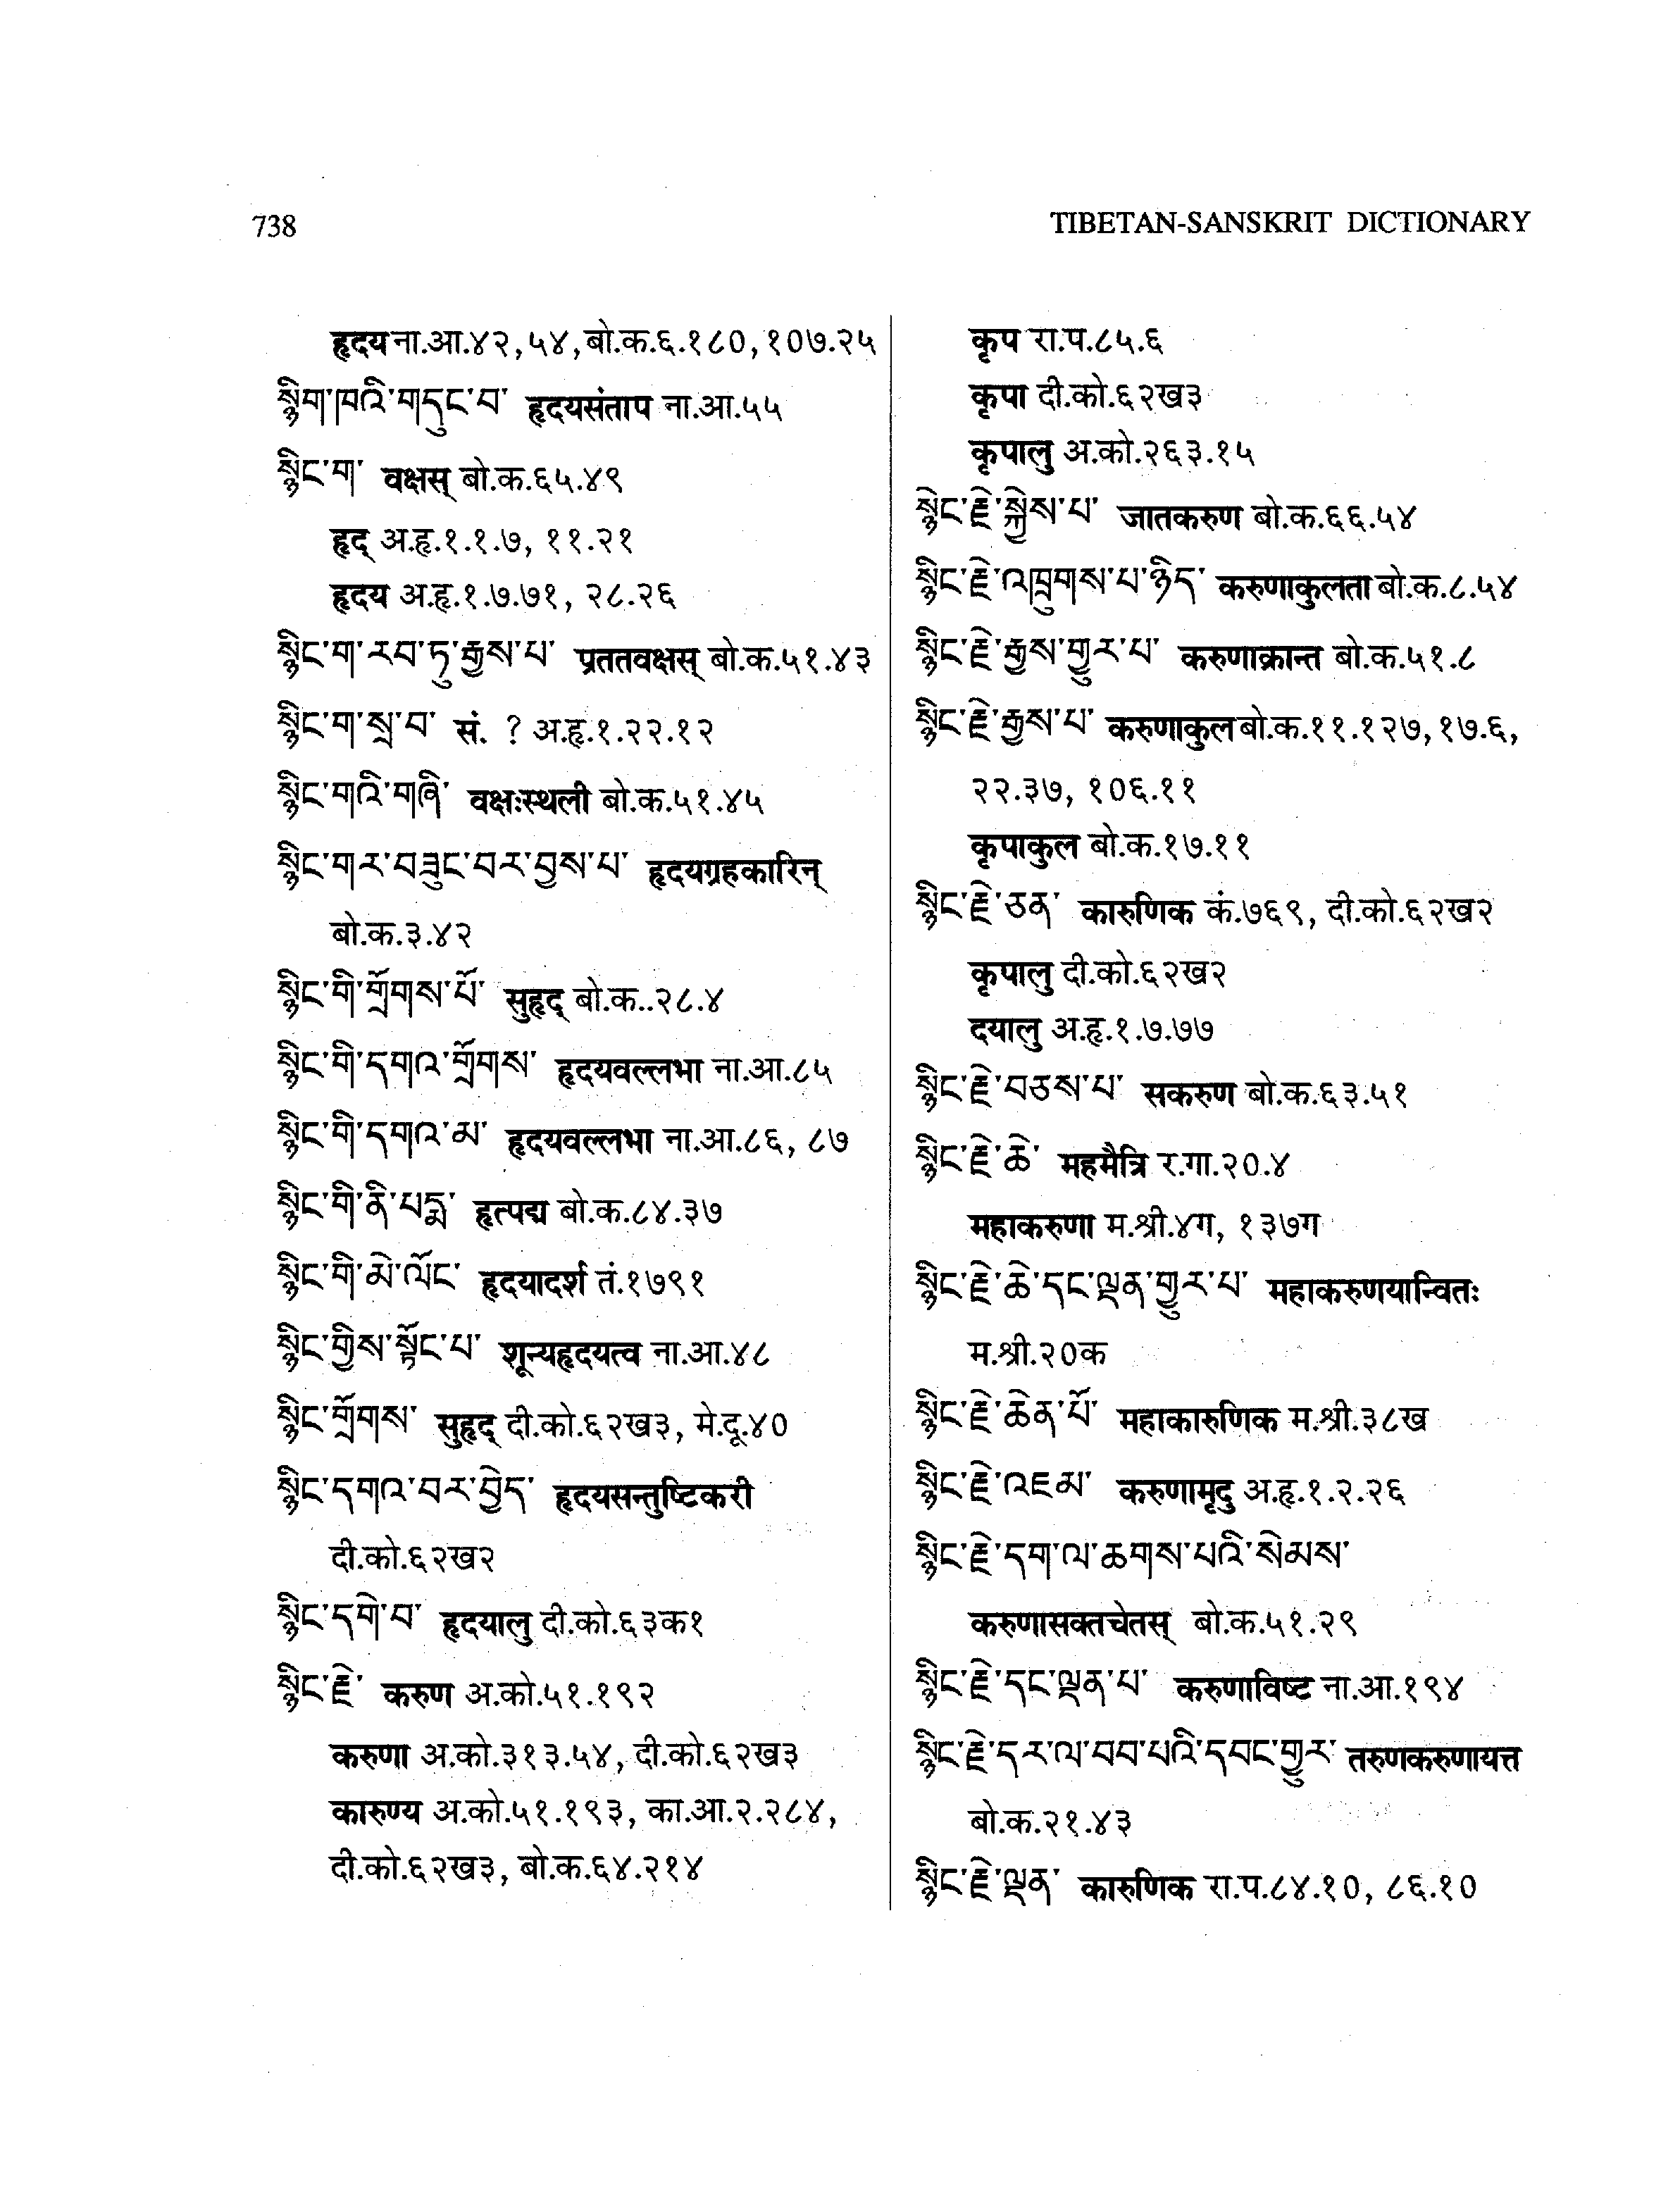 738
TIBETAN-SANSKRIT DICTIONARY
हृदय ना.आ.४२,५४, बो.क.६.१८०, १०७.२५
སྙིག་ཁའི་གདུང་བ་ हृदयसंताप ना.आ.५५
སྙིང་ག་ वक्षस् बो.क.६५.४९
हृद् अ.हृ.१.१.७, ११.२१
हृदय अ.हृ.१.७.७१, २८.२६
སྙིང་ག་རབ་ཏུ་རྒྱས་པ་ प्रततवक्षस् बो.क.५१.४३
སྙིང་ག་སྲ་བ་ सं. ? अ.हृ.१.२२.१२
སྙིང་གའི་གཞི་ वक्षःस्थली बो.क.५१.४५
སྙིང་གར་བཟུང་བར་བྱས་པ་ हृदयग्रहकारिन्
बो.क.३.४२
སྙིང་གི་གྲོགས་པོ་ सुहृद् बो.क..२८.४
སྙིང་གི་དགའ་གྲོགས་ हृदयवल्लभा ना.आ.८५
སྙིང་གི་དགའ་མ་ हृदयवल्लभा ना.आ.८६, ८७
སྙིང་གི་ནི་པདྨ་ हृत्पद्म बो.क.८४.३७
སྙིང་གི་མེ་ལོང་ हृदयादर्श तं.१७९१
སྙིང་གྱིས་སྟོང་པ་ शून्यहृदयत्व ना.आ.४८
སྙིང་གྲོགས་ सुहृद् दी.को.६२ख३, मे.दू.४०
སྙིང་དགའ་བར་བྱེད་ हृदयसन्तुष्टिकरी
दी.को.६२ख२
སྙིང་དགེ་བ་ हृदयालु दी.को.६३क१
སྙིང་རྗེ་ करुण अ.को.५१.१९२
करुणा अ.को.३१३.५४, दी.को.६२ख३
कारुण्य अ.को.५१.१९३, का.आ.२.२८४,
दी.को.६२ख३, बो.क.६४.२१४
कृप रा.प.८५.६
कृपा दी.को.६२ख३
कृपालु अ.को.२६३.१५
སྙེང་རྗེ་སྐྱེས་པ་ जातकरुण बो.क.६६.५४
སྙིང་རྗེ་འཁྲུགས་པ་ཉིད་ करुणाकुलता बो.क.८.५४
སྙིང་རྗེ་རྒྱས་གྱུར་པ་ करुणाक्रान्त बो.क.५१.८
སྙིང་རྗེ་རྒྱས་པ་ करुणाकुल बो.क.११.१२७, १७.६,
२२.३७, १०६.११
कृपाकुल बो.क.१७.११
སྙིང་རྗེ་ཅན་ कारुणिक कं.७६९, दी.को.६२ख२
कृपालु दी.को.६२ख२
दयालु अ.हृ.१.७.७७
སྙིང་རྗེ་བཅས་པ་ सकरुण बो.क.६३.५१
སྙིང་རྗེ་ཆེ་ महमैत्रि र.गा.२०.४
महाकरुणा म.श्री.४ग, १३७ग
སྙིང་རྗེ་ཆེ་དང་ལྡན་གྱུར་པ་ महाकरुणयान्वितः
म.श्री.२०क
སྙིང་རྗེ་ཆེན་པོ་ महाकारुणिक म.श्री.३८ख
སྙིང་རྗེ་འཇམ་ करुणामृदु अ.हृ.१.२.२६
སྙིང་རྗེ་དག་ལ་ཆགས་པའི་སེམས་
करुणासक्तचेतस् बो.क.५१.२९
སྙིང་རྗེ་དང་ལྡན་པ་ करुणाविष्ट ना.आ.१९४
སྙིང་རྗེ་དར་ལ་བབ་པའི་དབང་གྱུར་ तरुणकरुणायत्त
बो.क.२१.४३
སྙིང་རྗེ་ལྡན་ कारुणिक रा.प.८४.१०, ८६.१०